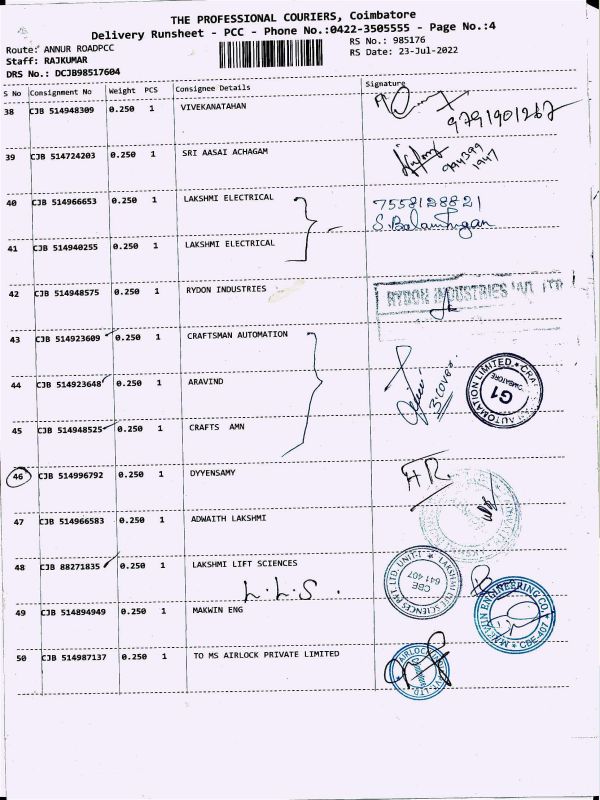 THE PROFESSIONAL COURIERS, Coimbatore
Delivery Runsheet - PCC - Phone No.:0422-3505555 - Page No.:4
Route: ANNUR ROADPCC
RS No.: 985176
Staff: RAJKUMAR
RS Date: 23-Jul-2022
DRS No.: DCJB98517604
S No Consignment No Weight PCS Consignee Details Signature
38 CJB 514948309 0.250 1 VIVEKANATAHAN
9791901267
39 CJB 514724203 0.250 1 SRI AASAI ACHAGAM
994399
1947
40 CJB 514966653 0.250 1 LAKSHMI ELECTRICAL 7558128821
S. Balamurugan
41 CJB 514940255 0.250 1 LAKSHMI ELECTRICAL
42 CJB 514948575 0.250 1 RYDON INDUSTRIES RYDON INDUSTRIES PVT LTD
43 CJB 514923609 0.250 1 CRAFTSMAN AUTOMATION
44 CJB 514923648 0.250 1 ARAVIND 3 cover
AUTOMATION LIMITED
G1
45 CJB 514948525 0.250 1 CRAFTS AMN
46 CJB 514996792 0.250 1 DYYENSAMY
47 CJB 514966583 0.250 1 ADWAITH LAKSHMI
48 CJB 88271835 0.250 1 LAKSHMI LIFT SCIENCES
L.L.S.
LAKSHMI LIFE SCIENCES PVT LTD, UNIT-I
CBE
641 407
49 CJB 514894949 0.250 1 MAKWIN ENG
MAKWIN ENGINEERING CO. CBE-407
50 CJB 514987137 0.250 1 TO MS AIRLOCK PRIVATE LIMITED
AIRLOCK